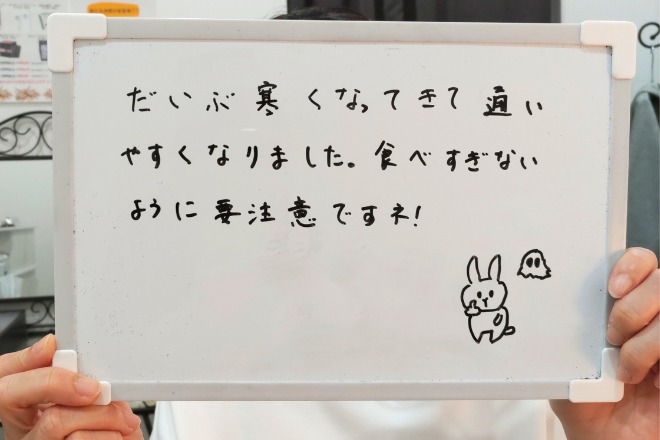 だいぶ寒くなってきて通い
やすくなりました。食べすぎない
ように要注意ですネ!